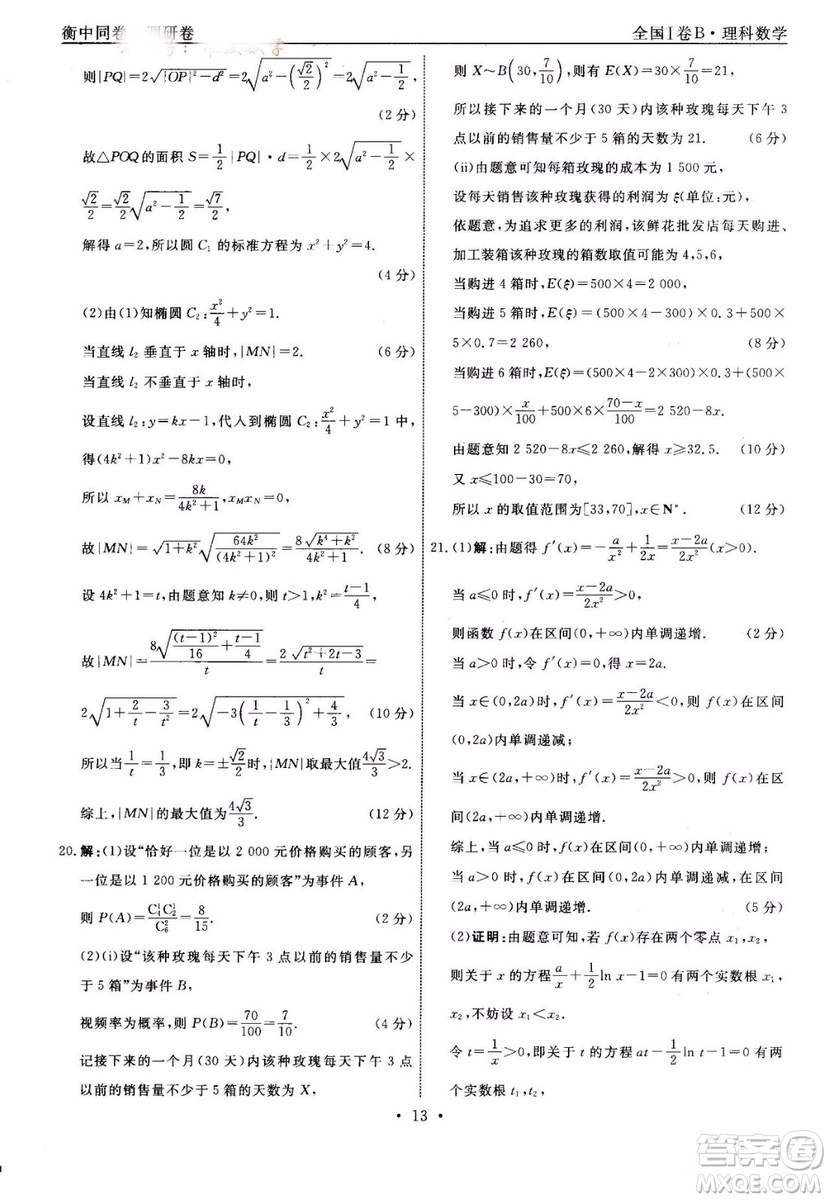 衡中同卷 调研卷
全国Ⅰ卷B·理科数学
则|PQ|=2√(|OP|²-d²)=2√(a²-(√2/2)²)=2√(a²-1/2),
(2分)
故△POQ的面积 S=1/2|PQ|·d=1/2×2√(a²-1/2)×
√2/2=√2/2√(a²-1/2)=√7/2,
解得 a=2,所以圆 C₁ 的标准方程为 x²+y²=4.
(4分)
(2)由(1)知椭圆 C₂:x²/4+y²=1.
当直线 l₂ 垂直于 x 轴时,|MN|=2. (6分)
当直线 l₂ 不垂直于 x 轴时,
设直线 l₂:y=kx-1,代入到椭圆 C₂:x²/4+y²=1 中,
得(4k²+1)x²-8kx=0,
所以 x_M+x_N=8k/(4k²+1),x_M x_N=0.
故|MN|=√(1+k²)√(64k²/(4k²+1)²)=8√(k⁴+k²)/(4k²+1). (8分)
设 4k²+1=t,由题意知 k≠0,则 t>1,k²=(t-1)/4,
故|MN|=8√((t-1)²/16+(t-1)/4)/t=2√(t²+2t-3)/t=
2√(1+2/t-3/t²)=2√(-3(1/t-1/3)²+4/3), (10分)
所以当1/t=1/3,即 k=±√2/2时,|MN|取最大值4√3/3>2.
综上,|MN|的最大值为4√3/3. (12分)
20. 解:(1)设“恰好一位是以 2 000 元价格购买的顾客,另
一位是以 1 200 元价格购买的顾客”为事件 A,
则 P(A)=C₄¹C₂¹/C₆²=8/15. (2分)
(2)(i)设“该种玫瑰每天下午 3 点以前的销售量不少
于 5 箱”为事件 B,
视频率为概率,则 P(B)=70/100=7/10. (4分)
记接下来的一个月(30 天)内该种玫瑰每天下午 3 点
以前的销售量不少于 5 箱的天数为 X,
则 X~B(30,7/10),则有 E(X)=30×7/10=21,
所以接下来的一个月(30 天)内该种玫瑰每天下午 3
点以前的销售量不少于 5 箱的天数为 21. (6分)
(ii)由题意可知每箱玫瑰的成本为 1 500 元,
设每天销售该种玫瑰获得的利润为 ξ(单位:元),
依题意,为追求更多的利润,该鲜花批发店每天购进、
加工装箱该种玫瑰的箱数取值可能为 4,5,6,
当购进 4 箱时,E(ξ)=500×4=2 000;
当购进 5 箱时,E(ξ)=(500×4-300)×0.3+500×
5×0.7=2 260, (8分)
当购进 6 箱时,E(ξ)=(500×4-2×300)×0.3+(500×
5-300)×x/100+500×6×(70-x)/100=2 520-8x.
由题意知 2 520-8x≤2 260,解得 x≥32.5. (10分)
又 x≤100-30=70,
所以 x 的取值范围为[33,70],x∈N*. (12分)
21. (1)解:由题得 f′(x)=-a/x²+1/2x=(x-2a)/2x²(x>0).
当 a≤0 时,f′(x)=(x-2a)/2x²>0,
则函数 f(x)在区间(0,+∞)内单调递增. (2分)
当 a>0 时,令 f′(x)=0,得 x=2a.
当 x∈(0,2a)时,f′(x)=(x-2a)/2x²<0,f(x)在区间
(0,2a)内单调递减;
当 x∈(2a,+∞)时,f′(x)=(x-2a)/2x²>0,f(x)在区
间(2a,+∞)内单调递增.
综上,当 a≤0 时,f(x)在区间(0,+∞)内单调递增;
当 a>0 时,f(x)在区间(0,2a)内单调递减,在区间
(2a,+∞)内单调递增. (5分)
(2)证明:由题意可知,若 f(x)存在两个零点 x₁,x₂,
则关于 x 的方程a/x+1/2ln x-1=0 有两个实数根 x₁,
x₂,不妨设 x₁<x₂.
令 t=1/x>0,即关于 t 的方程 at-1/2ln t-1=0 有两
个实数根 t₁,t₂,
· 13 ·